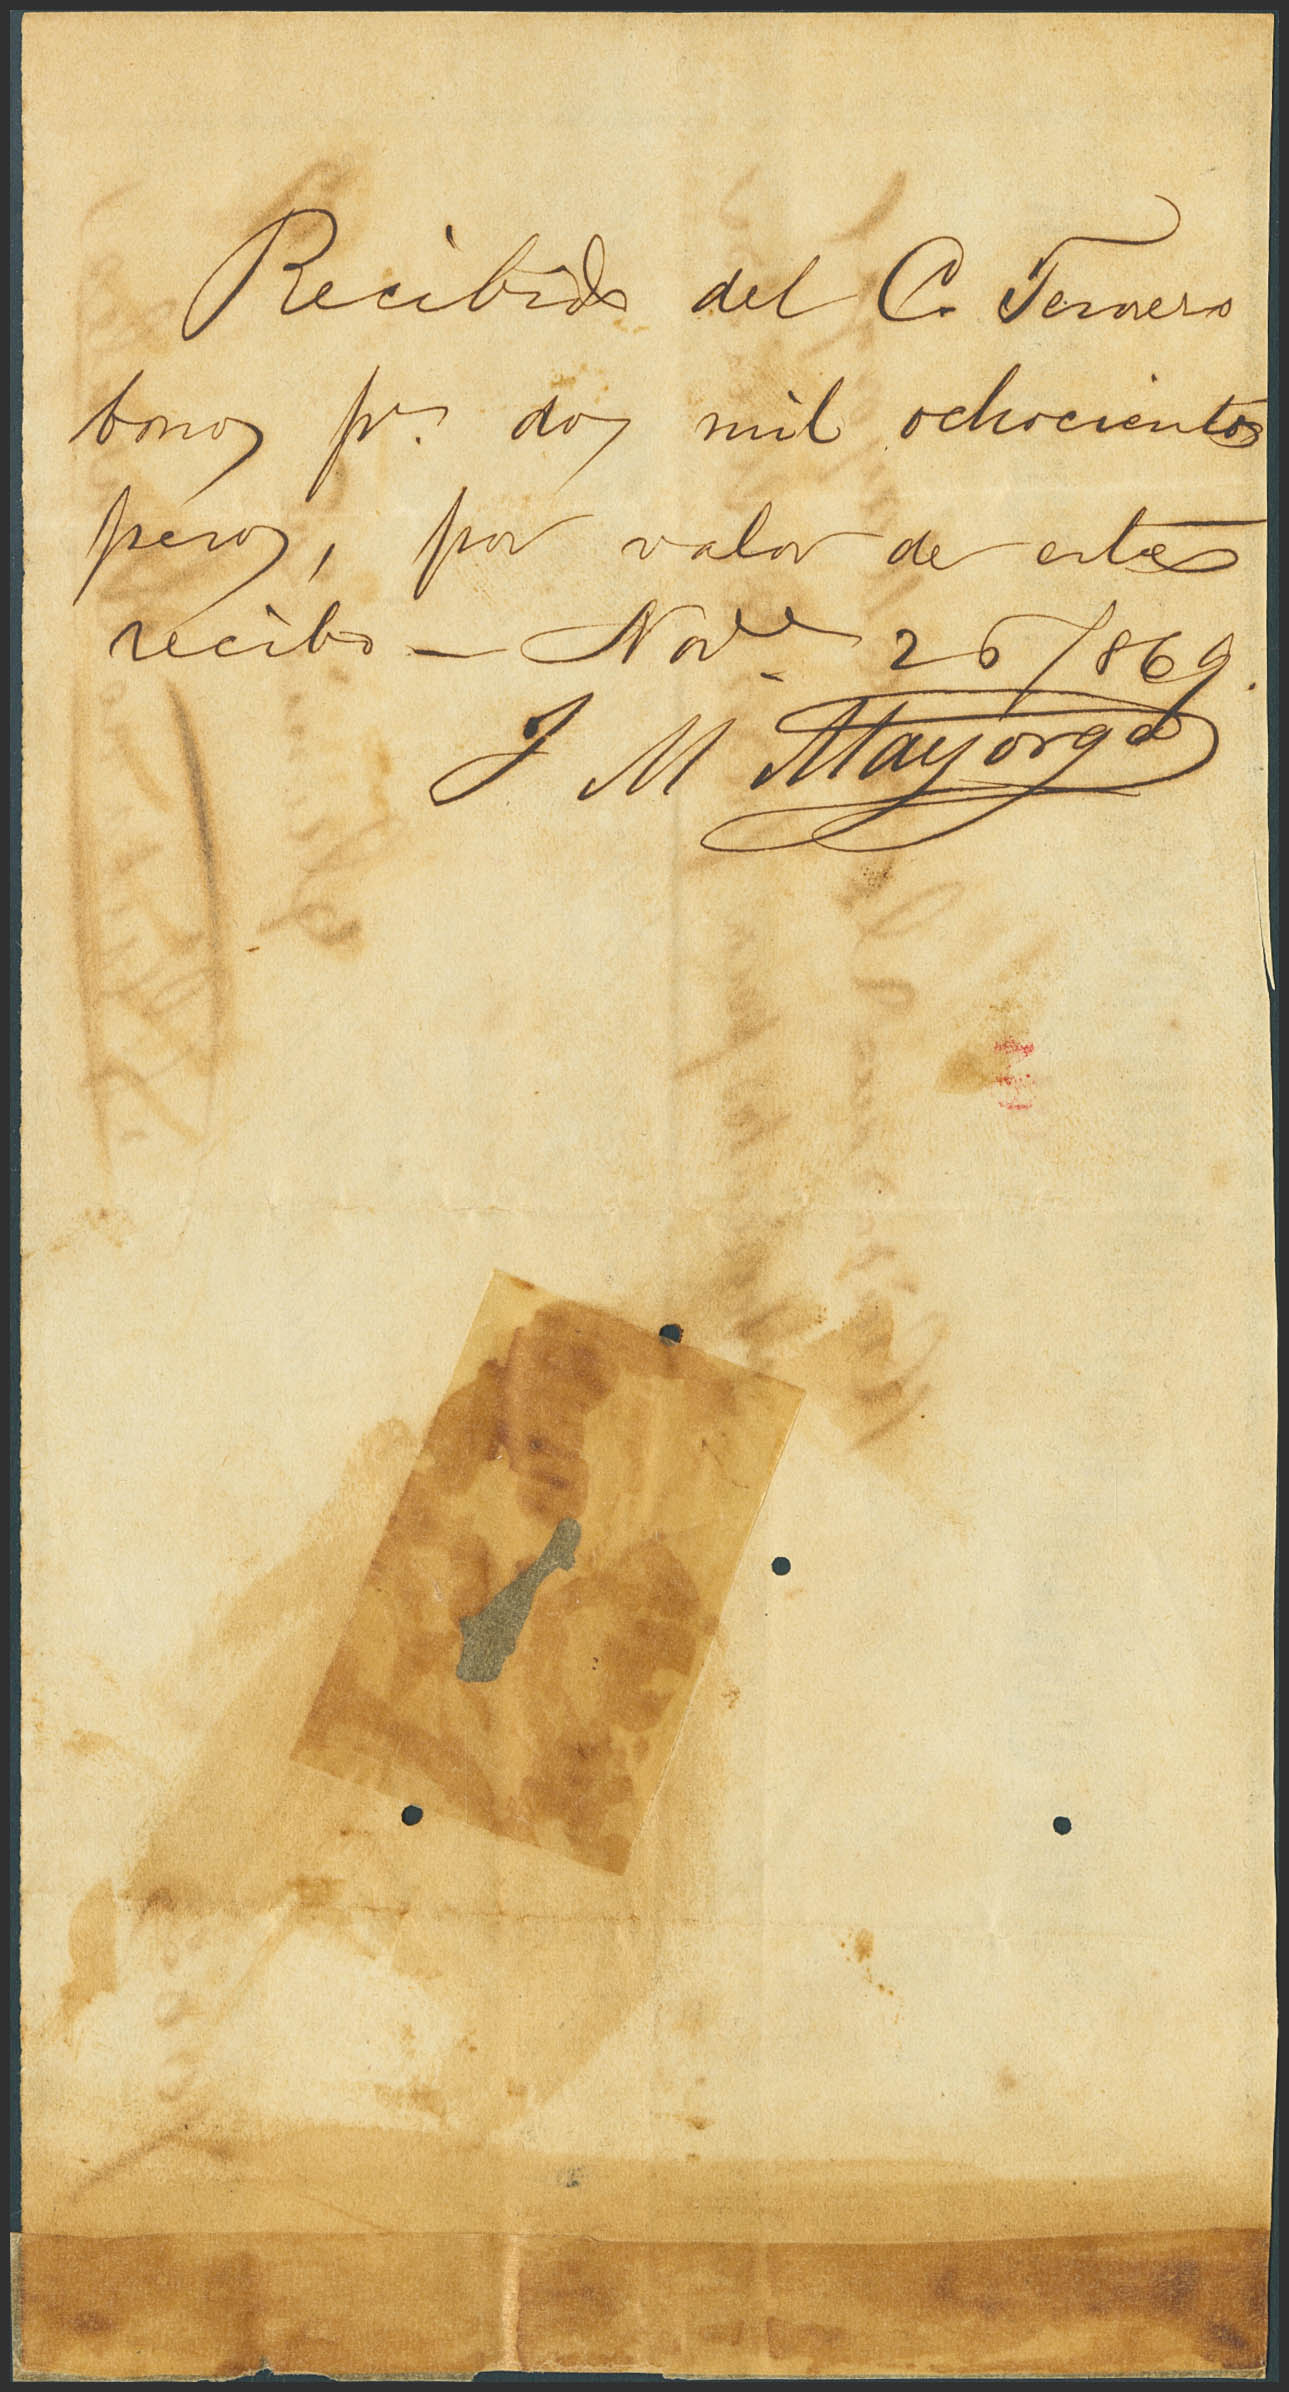 Recibido del C. Tesorero
bonos pr. dos mil ochocientos
pesos, por valor de este
recibo — Nov.e 26/869.
J M Mayorga